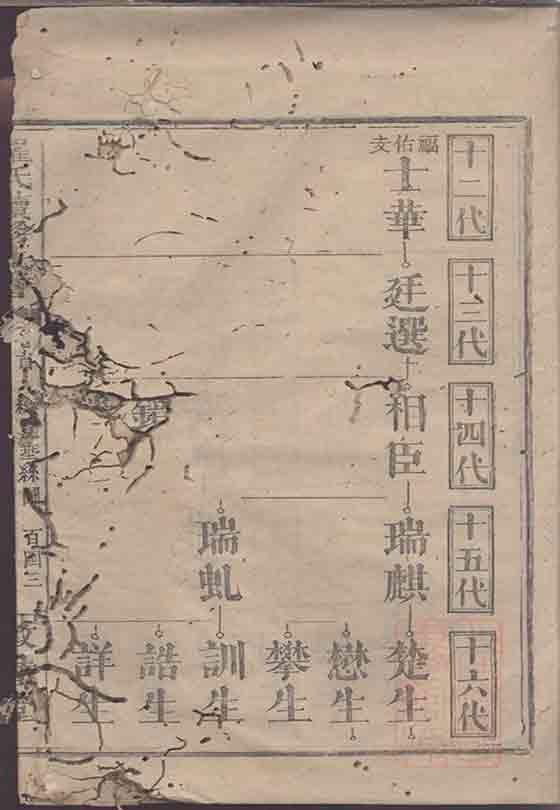 十二代
十三代
十四代
十五代
十六代
福佑支
士華
廷選
相臣
瑞麒
瑞虬
楚生
懋生
攀生
訓生
誥生
詳生
氏
百四三